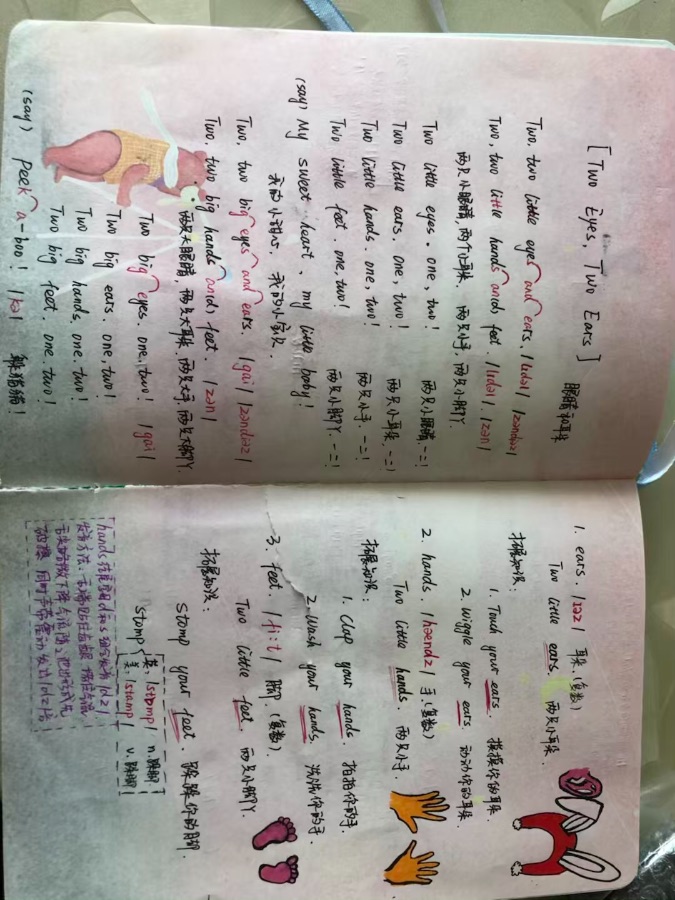 [Two Eyes, Two Ears]
眼睛和耳朵
Two, two little eyes and ears. /lɪdəl/ /zəndɪəz/
Two, two little hands and feet. /lɪdəl/. /zən/
两只小眼睛，两个小耳朵. 两只小手，两只小脚丫.
Two little eyes. one, two! 两只小眼睛, 一二!
Two little ears. one, two! 两只小耳朵, 一二!
Two little hands. one, two! 两只小手. 一二!
Two little feet. one, two! 两只小脚丫. 一二!
(say) My sweet heart, my little baby!
我的小甜心，我的小宝贝.
Two, two big eyes and ears. /gai/ /zəndɪəz/
Two, two big hands and feet. /zən/
两只大眼睛，两只大耳朵，两只大手，两只大脚丫.
Two big eyes. one, two! /gai/
Two big ears. one, two!
Two big hands, one, two!
Two big feet, one, two!
(say) Peek a-boo! /kə/ 躲猫猫!
1. ears. /ɪəz/ 耳朵 (复数)
Two little ears. 两只小耳朵.
拓展知识:
1. Touch your ears. 摸摸你的耳朵
2. Wiggle your ears. 动动你的耳朵.
2. hands. /hændz/ 手 (复数)
Two little hands. 两只小手.
拓展知识:
1. Clap your hands. 拍拍你的手.
2. Wash your hands. 洗洗你的手.
3. feet. /fi:t/ 脚. (复数)
Two little feet. 两只小脚丫.
拓展知识:
Stomp your feet. 跺跺你的脚.
stomp { 英: /stɒmp/ n. 跺脚
美: /stamp/ v. 跺脚
hands结尾字母d和s组合发音/dz/
发音方法: 舌端贴住齿龈, 堵住气流